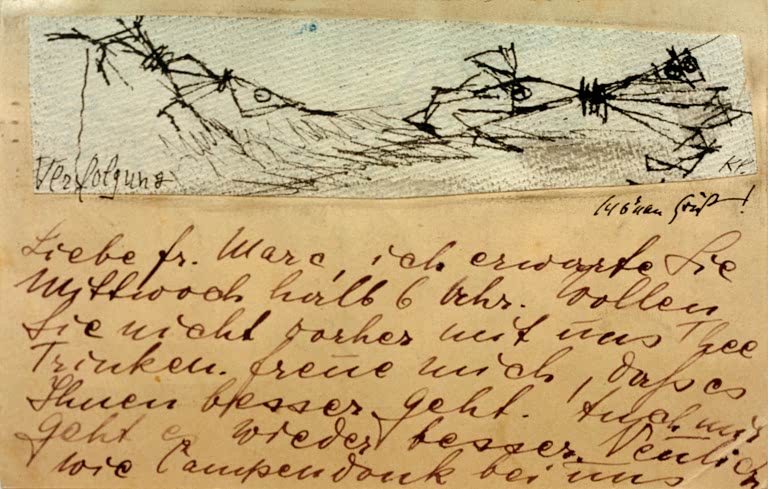 Verfolgung
Kl.
schönen Gruß!
Liebe fr. Marc, ich erwarte Sie
Mittwoch halb 6 Uhr. Wollen
Sie nicht vorher mit uns Thee
Trinken. freue mich, daß es
Ihnen besser geht. Auch mir
geht es wieder besser. Neulich
wie Campendonk bei uns